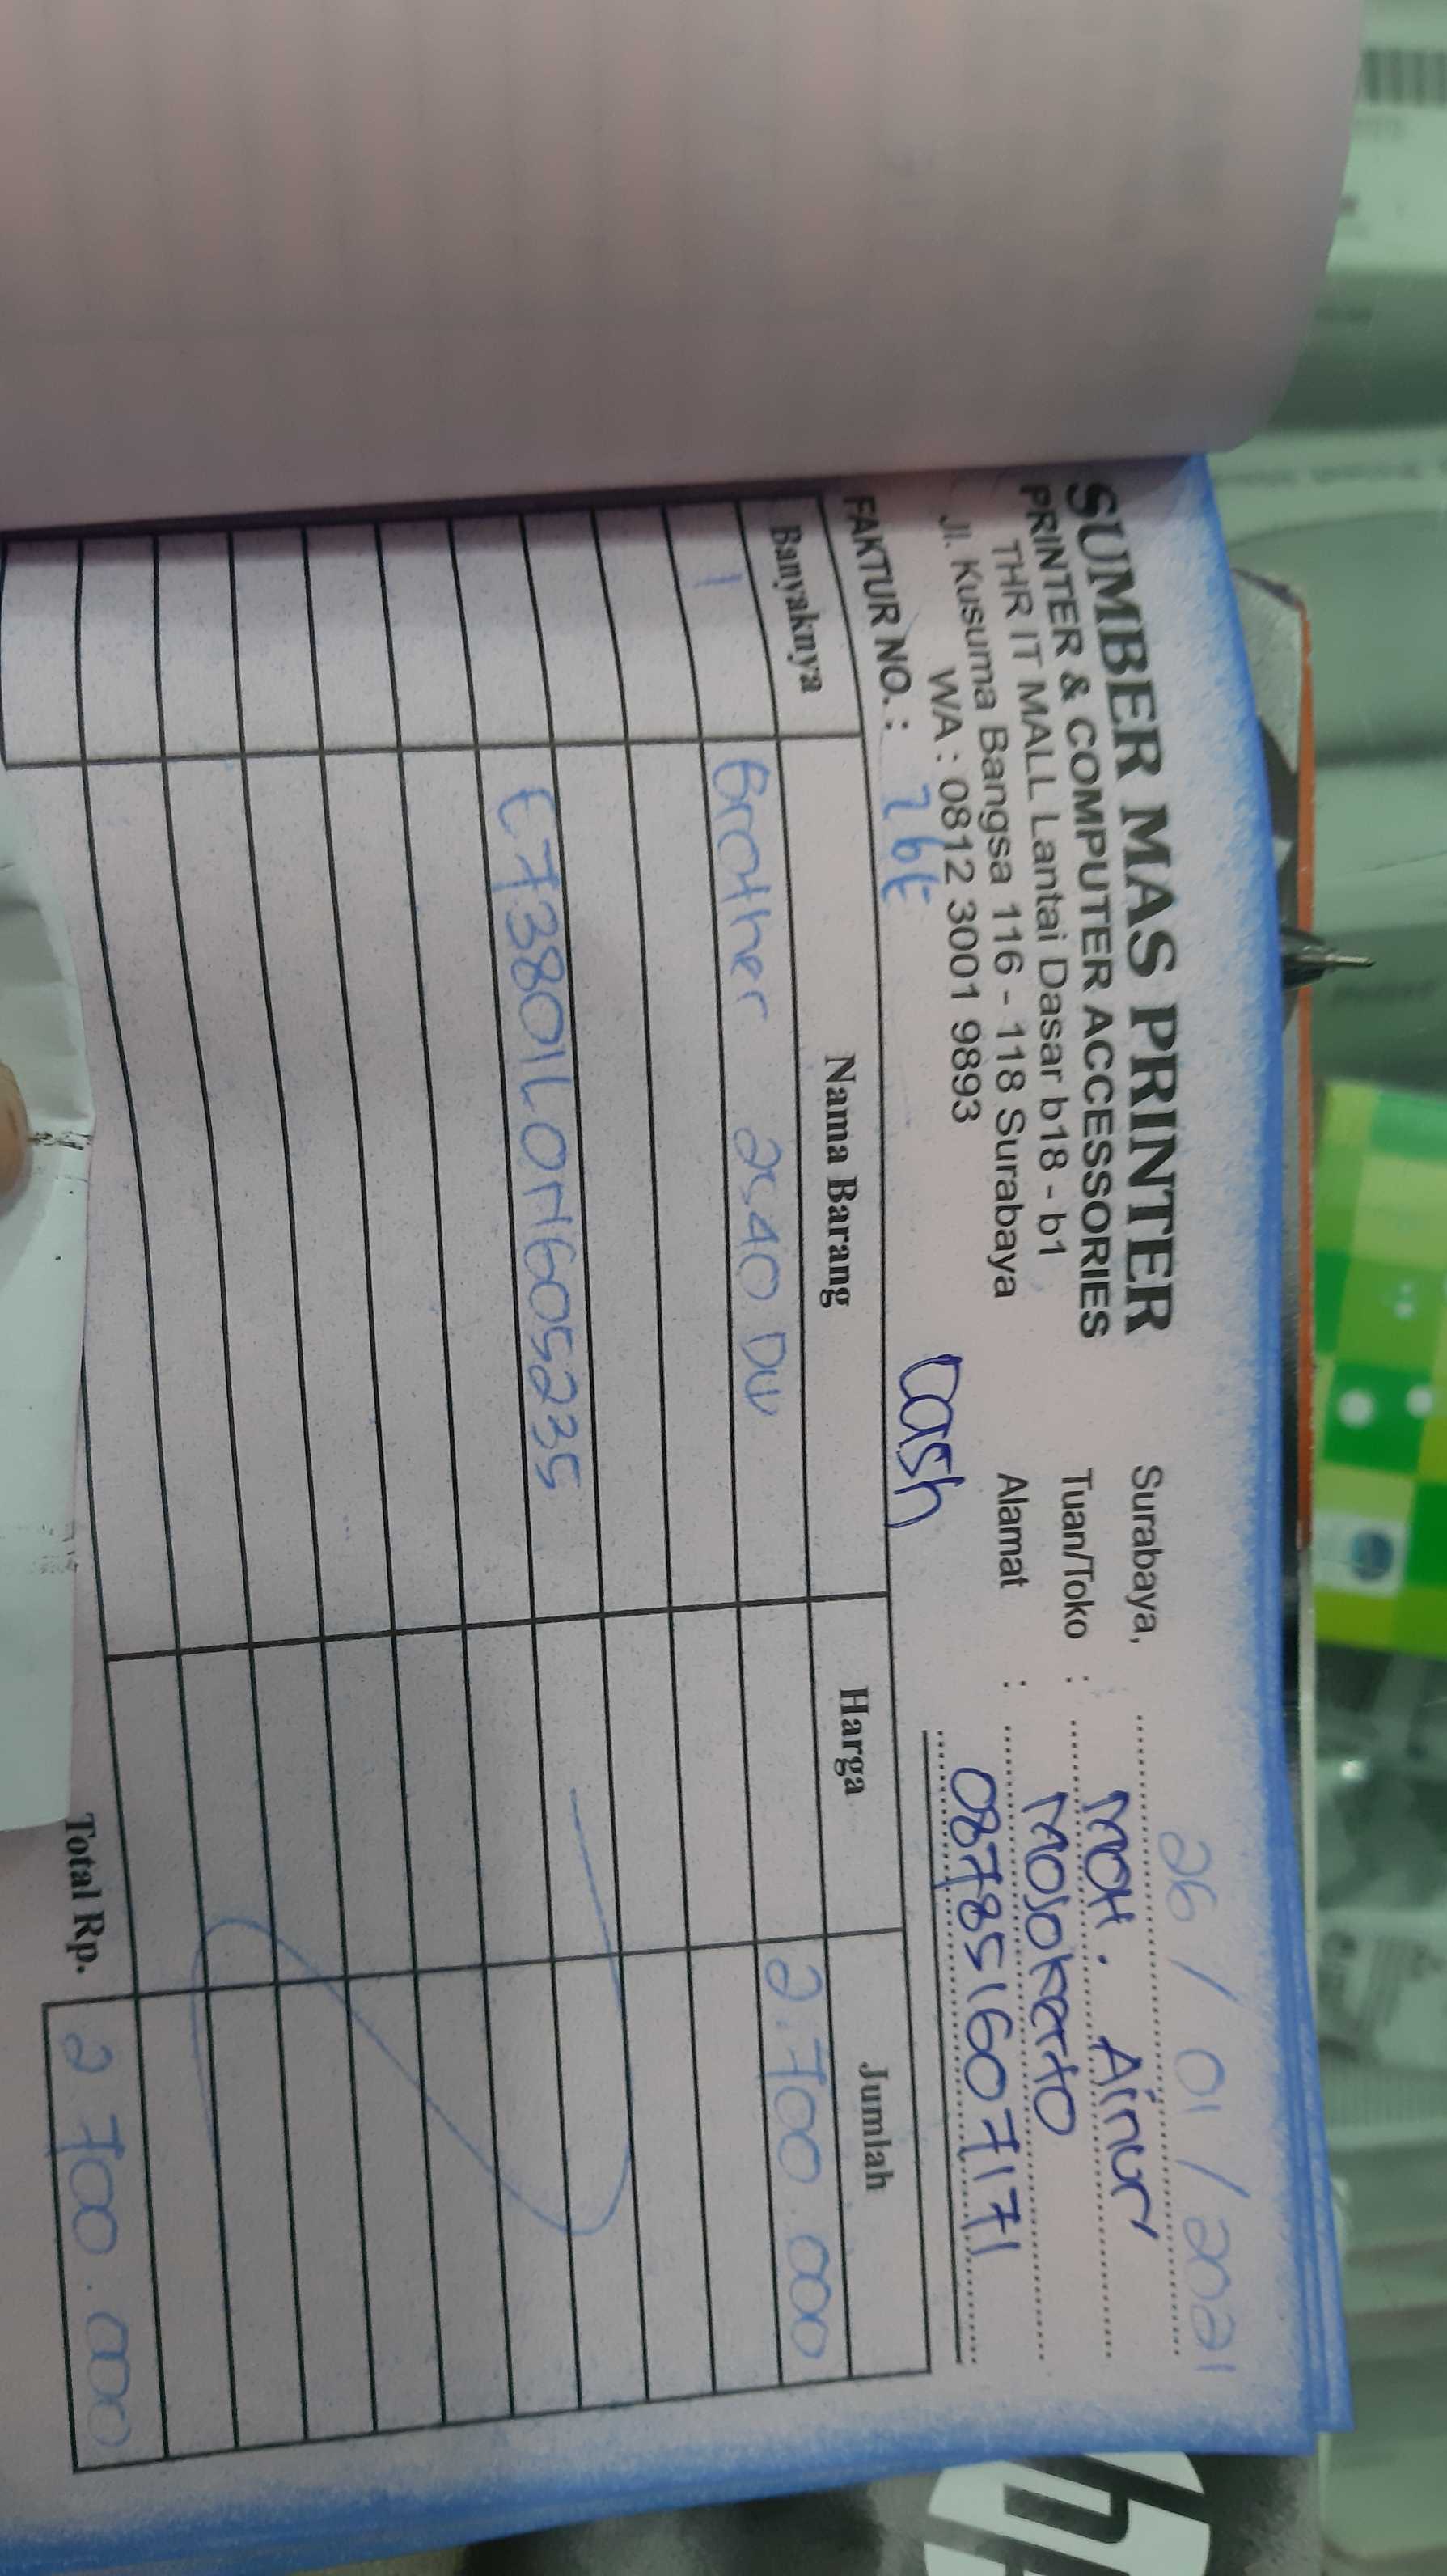 SUMBER MAS PRINTER
PRINTER & COMPUTER ACCESSORIES
THR IT MALL Lantai Dasar b18 - b1
Jl. Kusuma Bangsa 116 - 118 Surabaya
WA : 0812 3001 9893
Surabaya, 26 / 01 / 2021
Tuan/Toko : MOH. Ainur
Alamat : Mojokerto
087851607171
FAKTUR NO. :
Cash
Banyaknya Nama Barang Harga Jumlah
1 Brother 2540 DW 2.700.000
E73801L0N605235
Total Rp. 2.700.000
hp